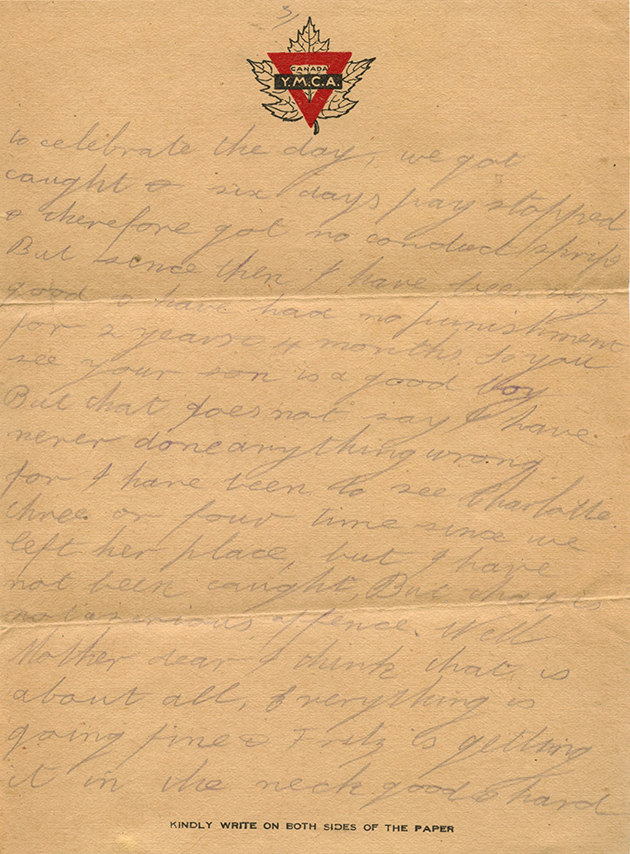 3/
CANADA
Y.M.C.A.
to celebrate the day, we got
caught & six days pay stopped
& therefore got no conduct strips
But since then I have been very
good & have had no punishment
for 2 years & 4 months. So you
see your son is a good boy
But that does not say I have
never done anything wrong
for I have been to see Charlotte
three or four time since we
left her place, but I have
not been caught, But that is
not a serious offence. Well
Mother dear I think that is
about all, Everything is
going fine & Fritz is getting
it in the neck good & hard
KINDLY WRITE ON BOTH SIDES OF THE PAPER